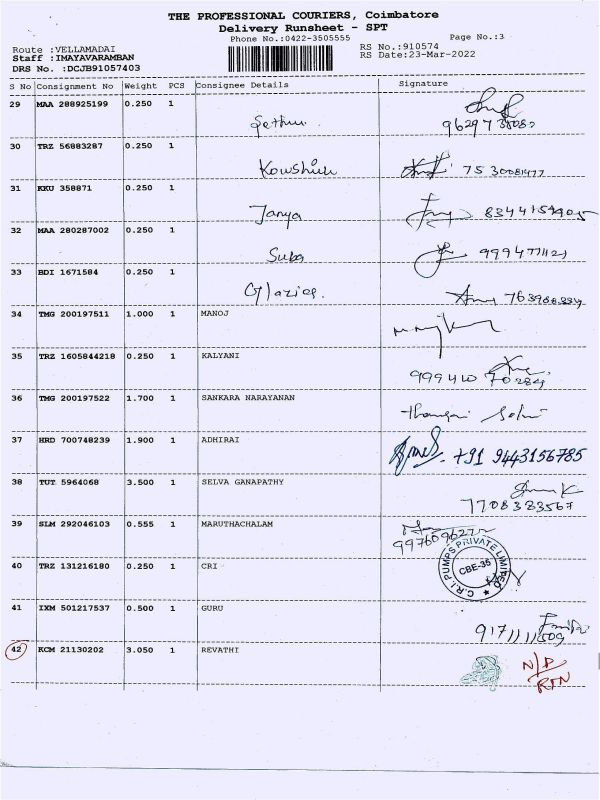 THE PROFESSIONAL COURIERS, Coimbatore
Delivery Runsheet - SPT
Phone No.:0422-3505555
Page No.:3
Route :VELLAMADAI
RS No.:910574
Staff :IMAYAVARAMBAN
RS Date:23-Mar-2022
DRS No. :DCJB91057403
S No Consignment No Weight PCS Consignee Details Signature
29 MAA 288925199 0.250 1
30 TRZ 56883287 0.250 1
Kowshik
31 KKU 358871 0.250 1
Janya
32 MAA 280287002 0.250 1
Suba
33 BDI 1671584 0.250 1
34 TMG 200197511 1.000 1 MANOJ
35 TRZ 1605844218 0.250 1 KALYANI
36 TMG 200197522 1.700 1 SANKARA NARAYANAN
37 HRD 700748239 1.900 1 ADHIRAI
+91 9443156785
38 TUT 5964068 3.500 1 SELVA GANAPATHY
7708383567
39 SLM 292046103 0.555 1 MARUTHACHALAM
40 TRZ 131216180 0.250 1 CRI
C.R.I. PUMPS PRIVATE LIMITED
CBE-35
41 IXM 501217537 0.500 1 GURU
42 KCM 21130202 3.050 1 REVATHI
N/D
RTN